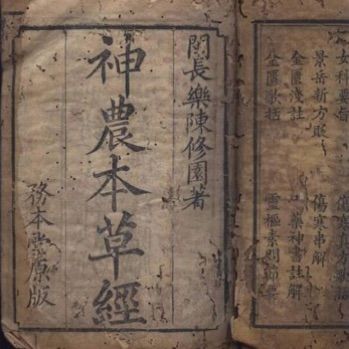 女科要旨
景岳新方砭 傷寒串解
金匱淺註 藥神書註解
金匱歌括 靈樞素問節要
閩長樂陳修園著
神農本草經
務本堂原版